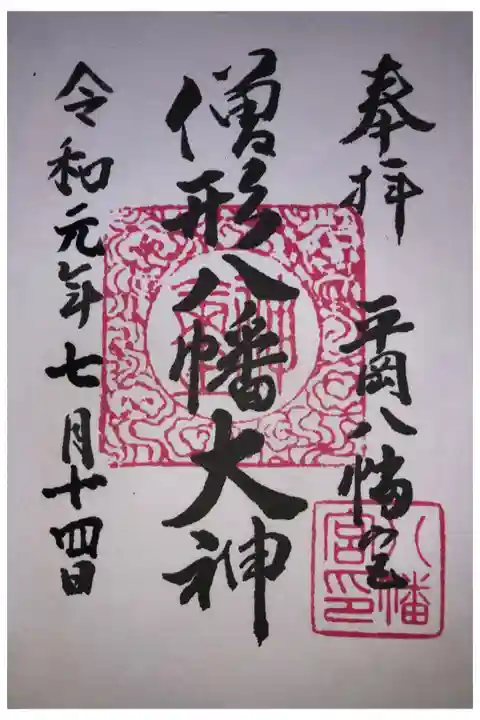 奉拝 平岡八幡宮
僧形八幡大神
令和元年七月十四日
八幡
宮印